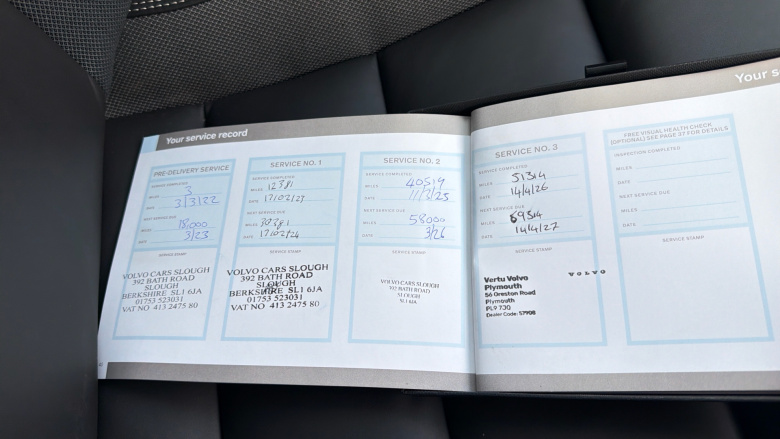 Your service record
PRE-DELIVERY SERVICE
SERVICE COMPLETED
MILES 3
DATE 3/3/22
NEXT SERVICE DUE
MILES 18,000
DATE 3/23
SERVICE STAMP
VOLVO CARS SLOUGH
392 BATH ROAD
SLOUGH
BERKSHIRE SL1 6JA
01753 523031
VAT NO 413 2475 80
SERVICE NO. 1
SERVICE COMPLETED
MILES 12381
DATE 17/02/23
NEXT SERVICE DUE
MILES 30381
DATE 17/02/24
SERVICE STAMP
VOLVO CARS SLOUGH
392 BATH ROAD
SLOUGH
BERKSHIRE SL1 6JA
01753 523031
VAT NO 413 2475 80
SERVICE NO. 2
SERVICE COMPLETED
MILES 40519
DATE 11/3/25
NEXT SERVICE DUE
MILES 58000
DATE 3/26
SERVICE STAMP
VOLVO CARS SLOUGH
392 BATH ROAD
SLOUGH
SL1 6JA
Your s
SERVICE NO. 3
SERVICE COMPLETED
MILES 51314
DATE 14/4/26
NEXT SERVICE DUE
MILES
DATE 14/4/27
SERVICE STAMP
VOLVO
Vertu Volvo
Plymouth
56 Greston Road
Plymouth
PL9 7JQ
Dealer Code: 57908
FREE VISUAL HEALTH CHECK
(OPTIONAL) SEE PAGE 37 FOR DETAILS
INSPECTION COMPLETED
MILES
DATE
NEXT SERVICE DUE
MILES
DATE
SERVICE STAMP